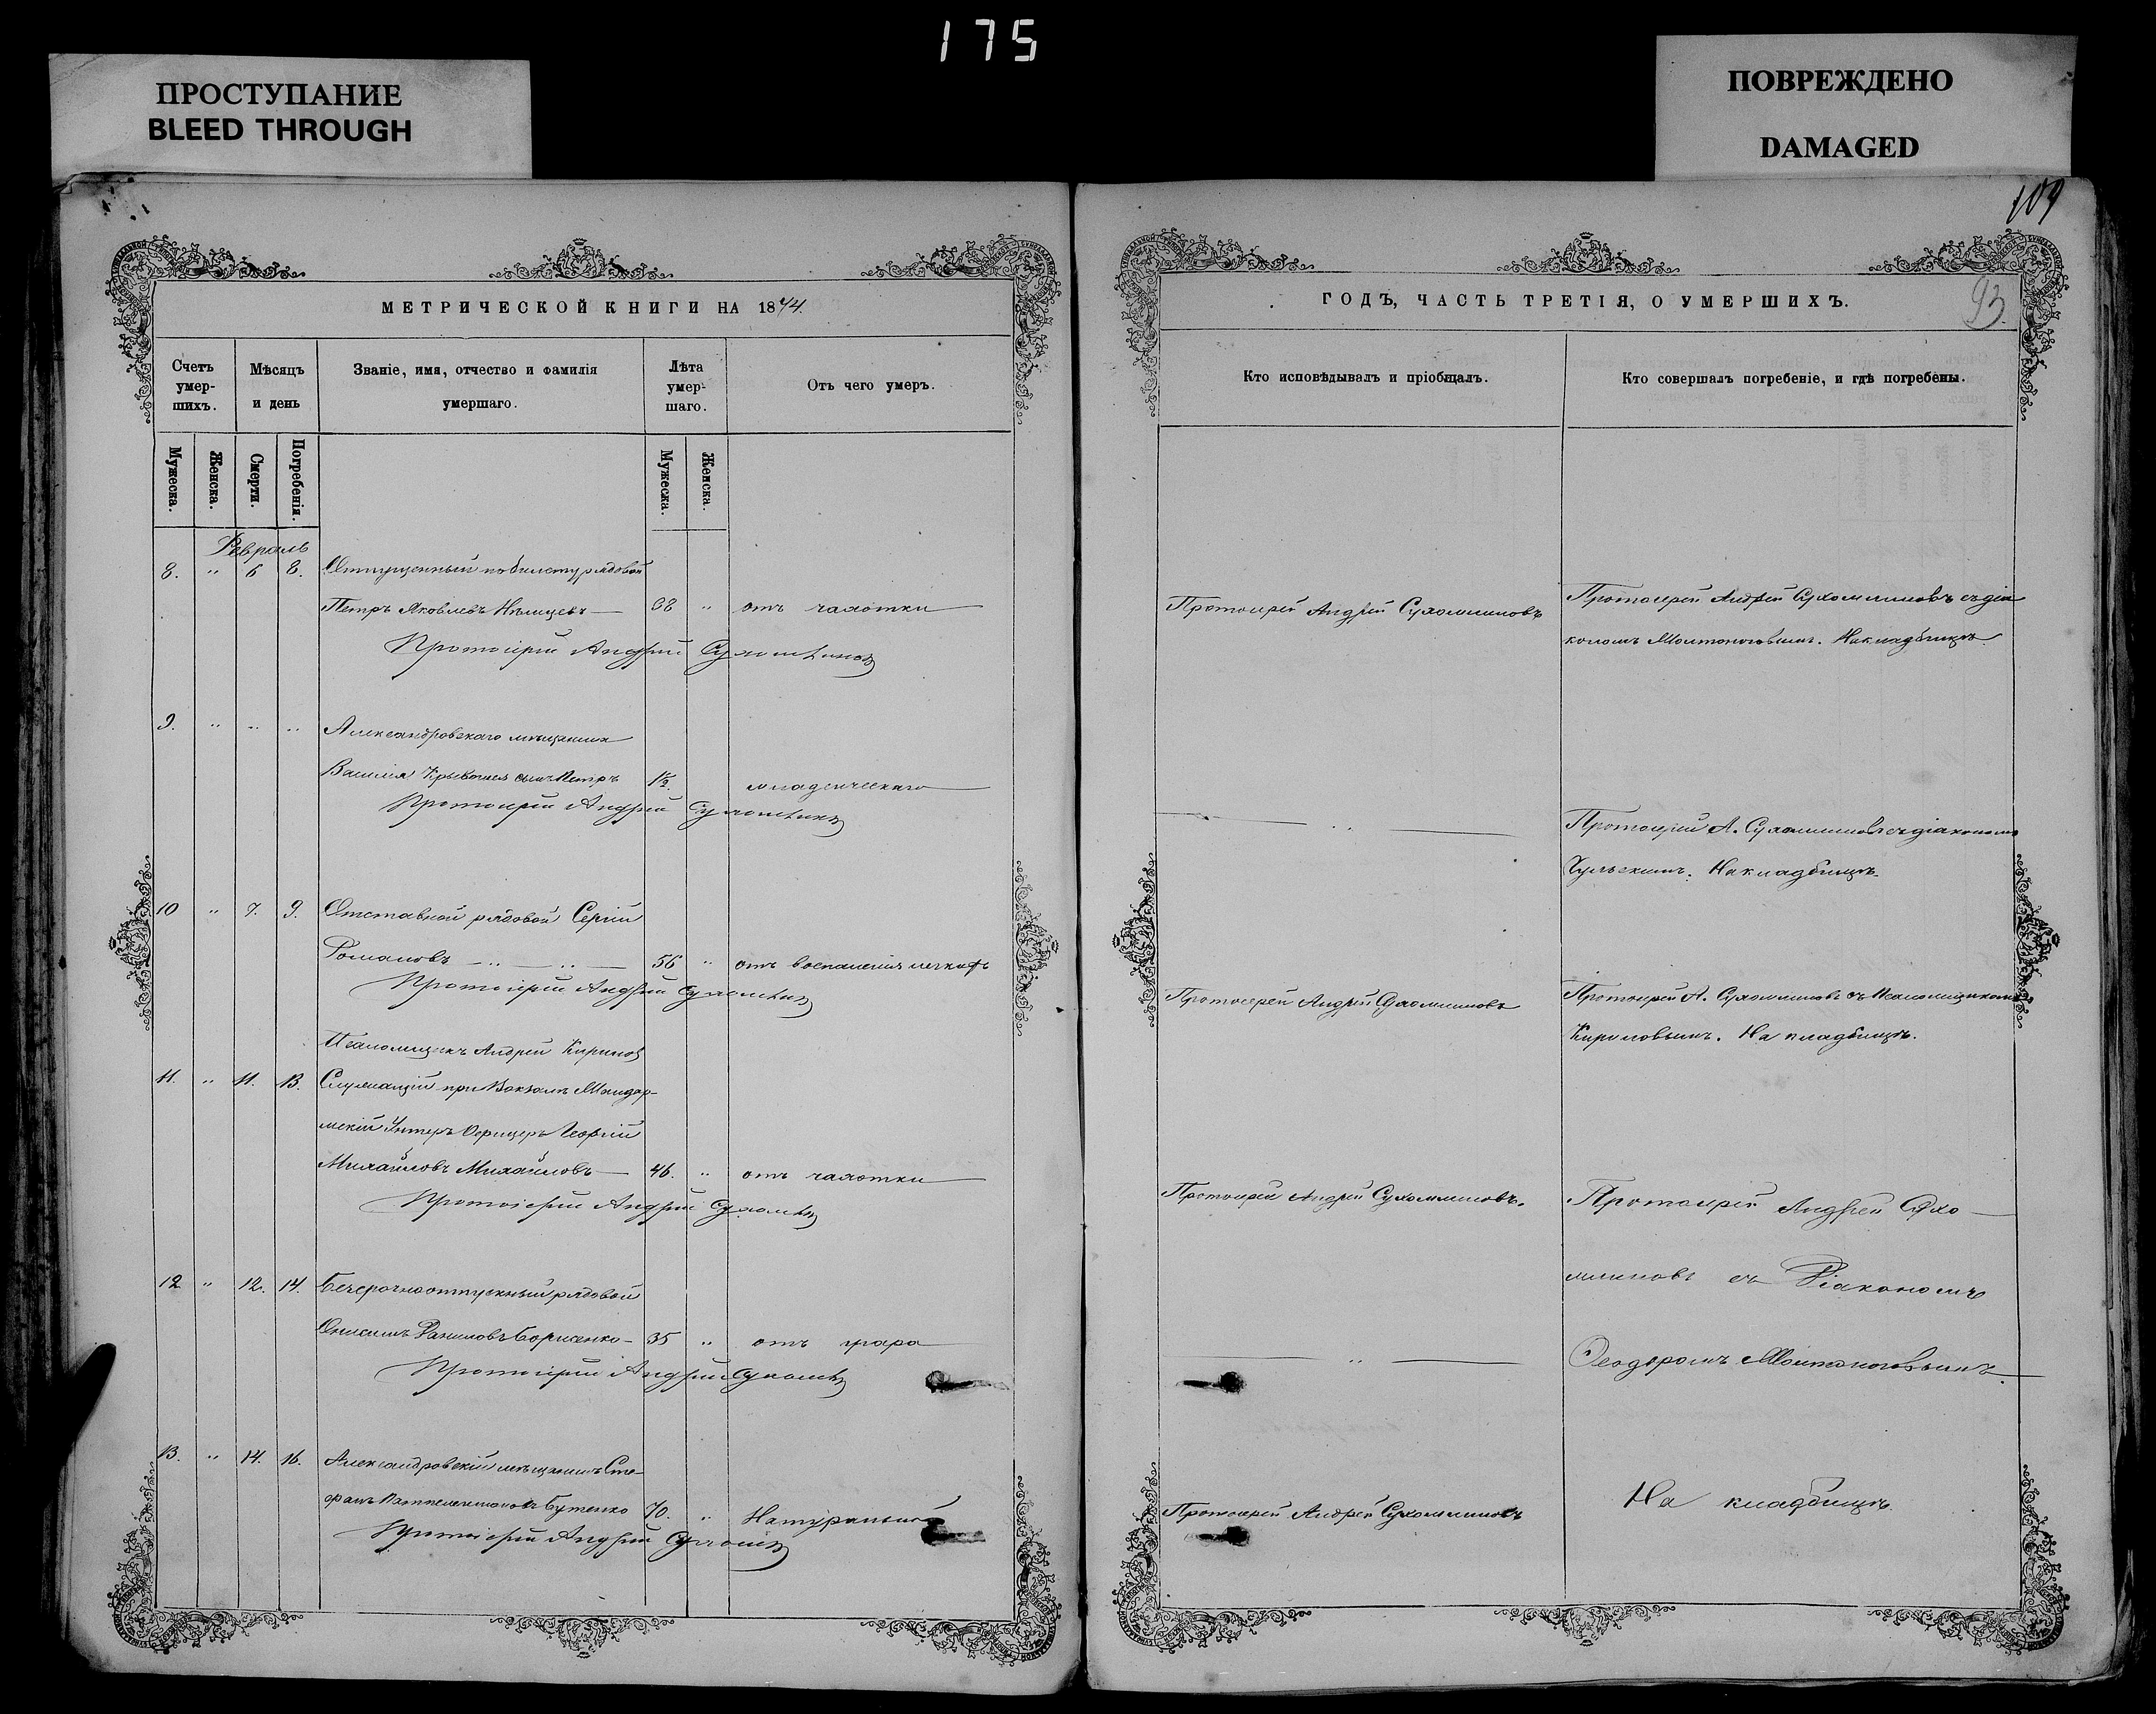 175
ПРОСТУПАНИЕ
BLEED THROUGH
ПОВРЕЖДЕНО
DAMAGED
109
93
МЕТРИЧЕСКОЙ КНИГИ НА 1874.
Счетъ умер-шихъ.
Мѣсяцъ и день
Званіе, имя, отчество и фамилія умершаго.
Лѣта умер-шаго.
Отъ чего умеръ.
Мужеска.
Женска.
Смерти.
Погребенія.
Мужеска.
Женска.
Февраль
8. " 6 8. Отпущенный по билету рядовой
Петръ Яковлевъ Нѣмцевъ — " отъ чахотки
Протоіерей Андрей Сухомлинов
9. " " " Александровскаго мѣщанина
Василія сынъ Петръ 1½ младенческаго
Протоіерей Андрей Сухомлинов
10 " 7. 9. Отставной рядовой Сергій
Романовъ — 56 " отъ воспаленія легкихъ
Протоіерей Андрей Сухомлин
Псаломщикъ Андрей Кирилов
11. " 11. 13. Служащій при Вокзалѣ Жандар-
мскій Унтеръ Офицеръ Георгій
Михайловъ Михайловъ — 46. " отъ чахотки
Протоіерей Андрей Сухомлин
12 " 12. 14. Безсрочноотпускный рядовой
Онисимъ Даниловъ Борисенко — 35 " отъ удара
Протоіерей Андрей Сухомлин
13. " 14. 16. Александровскій мѣщанинъ Сте-
фанъ Пантелеимоновъ Бутенко 70. " Натурально
Протоіерей Андрей Сухомлин
ГОДЪ, ЧАСТЬ ТРЕТІЯ, О УМЕРШИХЪ.
Кто исповѣдывалъ и пріобщалъ.
Кто совершалъ погребеніе, и гдѣ погребены.
Протоіерей Андрей Сухомлиновъ
Протоіерей Андрей Сухомлиновъ съ діа
кономъ На кладбищѣ.
Протоіерей А. Сухомлиновъ съ діакономъ
На кладбищѣ.
Протоіерей Андрей Сухомлиновъ
Протоіерей А. Сухомлиновъ съ Псаломщикомъ
Кириловымъ. На кладбищѣ.
Протоіерей Андрей Сухомлиновъ.
Протоіерей Андрей Сухо-
млиновъ съ Діакономъ
Ѳеодоромъ
Протоіерей Андрей Сухомлиновъ
На кладбищѣ